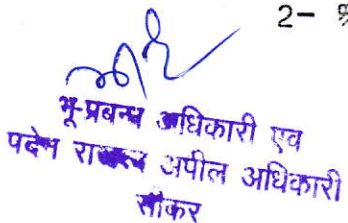 2-
भू-प्रबन्ध अधिकारी एवं
पदेन राजस्व अपील अधिकारी
सीकर